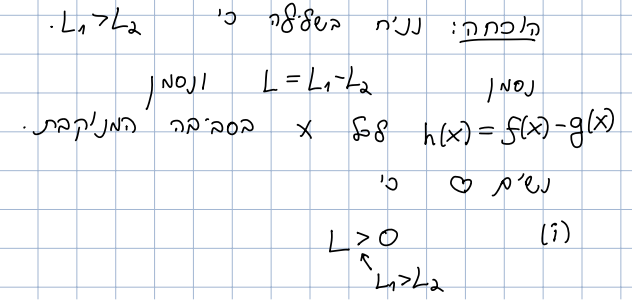 הוכחה: נניח בשלילה כי L₁>L₂.
נסמן L = L₁-L₂ ונסמן
h(x) = f(x)-g(x) לכל x בסביבה המנוקבת.
נשים ♡ כי
(i) L > 0
↖ L₁>L₂